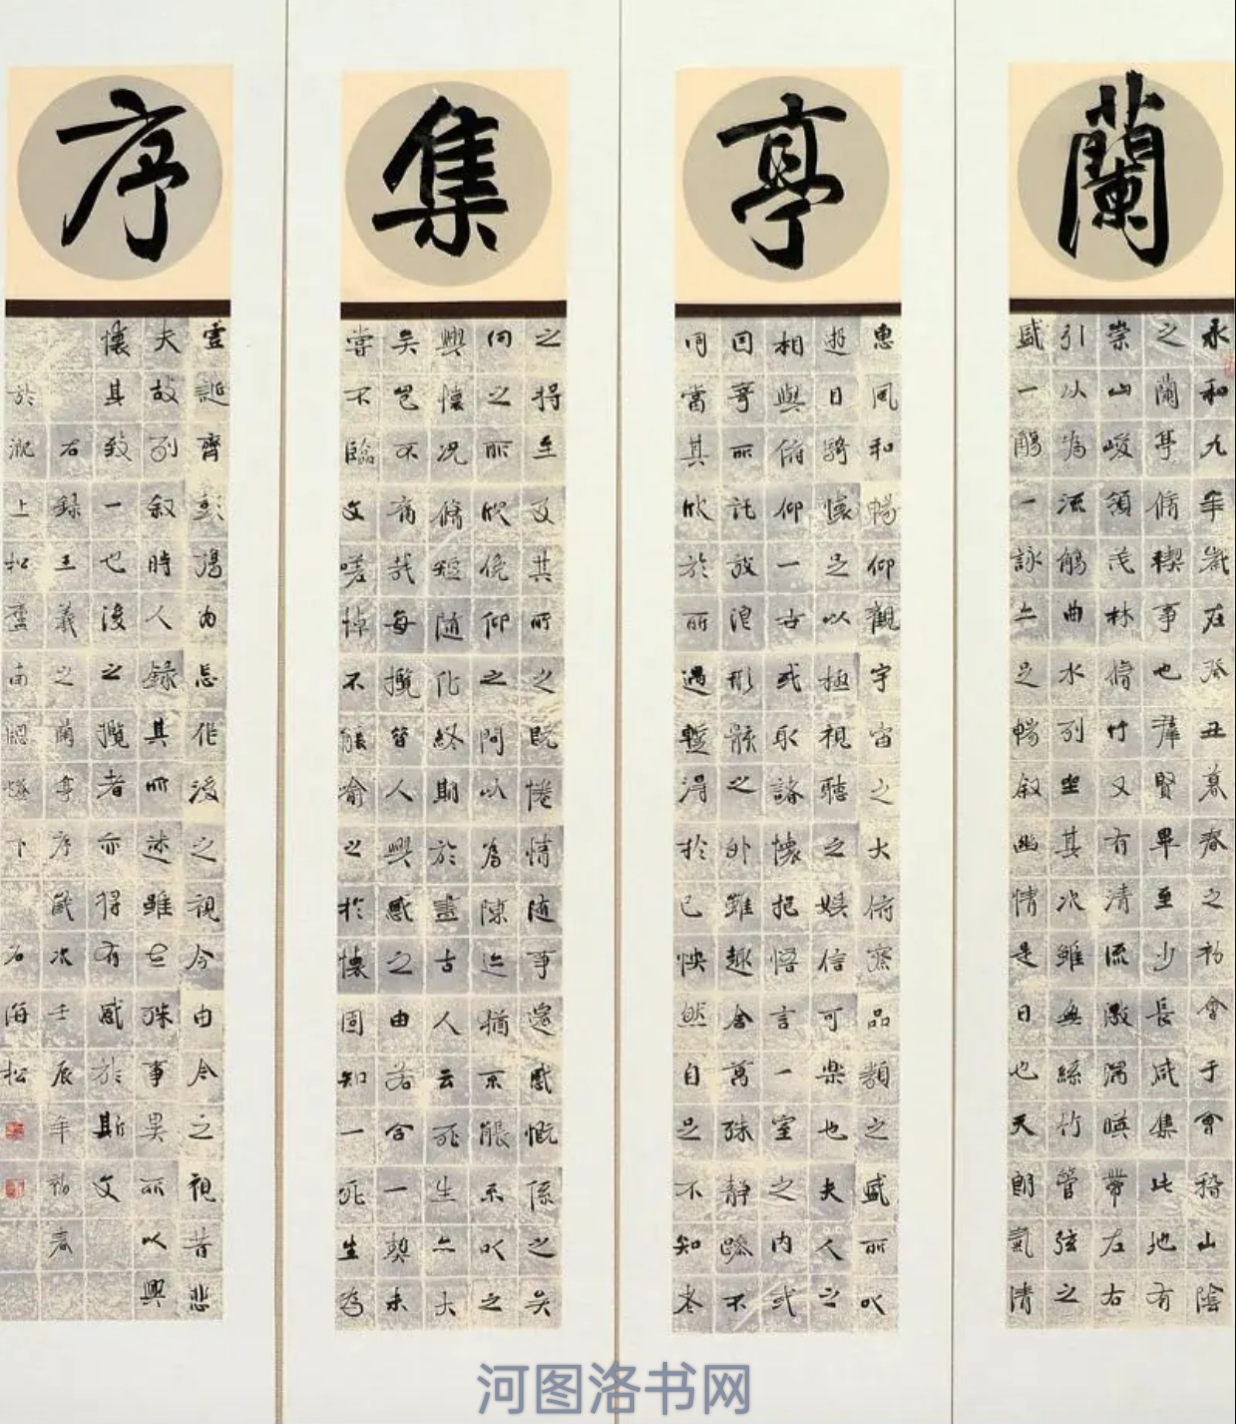 蘭
永和九年歲在癸丑暮春之初會于會稽山陰
之蘭亭脩稧事也群賢畢至少長咸集此地有
崇山峻領茂林脩竹又有清流激湍暎帶左右
引以為流觴曲水列坐其次雖無絲竹管弦之
盛一觴一詠亦足暢叙幽情是日也天朗氣清
亭
惠風和暢仰觀宇宙之大俯察品類之盛所以
遊目騁懷足以極視聽之娛信可樂也夫人之
相與俯仰一世或取諸懷抱悟言一室之内或
因寄所託放浪形骸之外雖趣舍萬殊静躁不
同當其欣於所遇暫得於己怏然自足不知老
集
之將至及其所之既惓情隨事遷感慨係之矣
向之所欣俛仰之間以為陳迹猶不能不以之
興懷況脩短隨化終期於盡古人云死生亦大
矣豈不痛哉每攬昔人興感之由若合一契未
嘗不臨文嗟悼不能喻之於懷固知一死生為
序
虛誕齊彭殤為妄作後之視今由今之視昔悲
夫故列叙時人録其所述雖世殊事異所以興
懷其致一也後之攬者亦將有感於斯文
右録王羲之蘭亭序歲次壬辰年初春
於上松南窗燈下石海松
河图洛书网